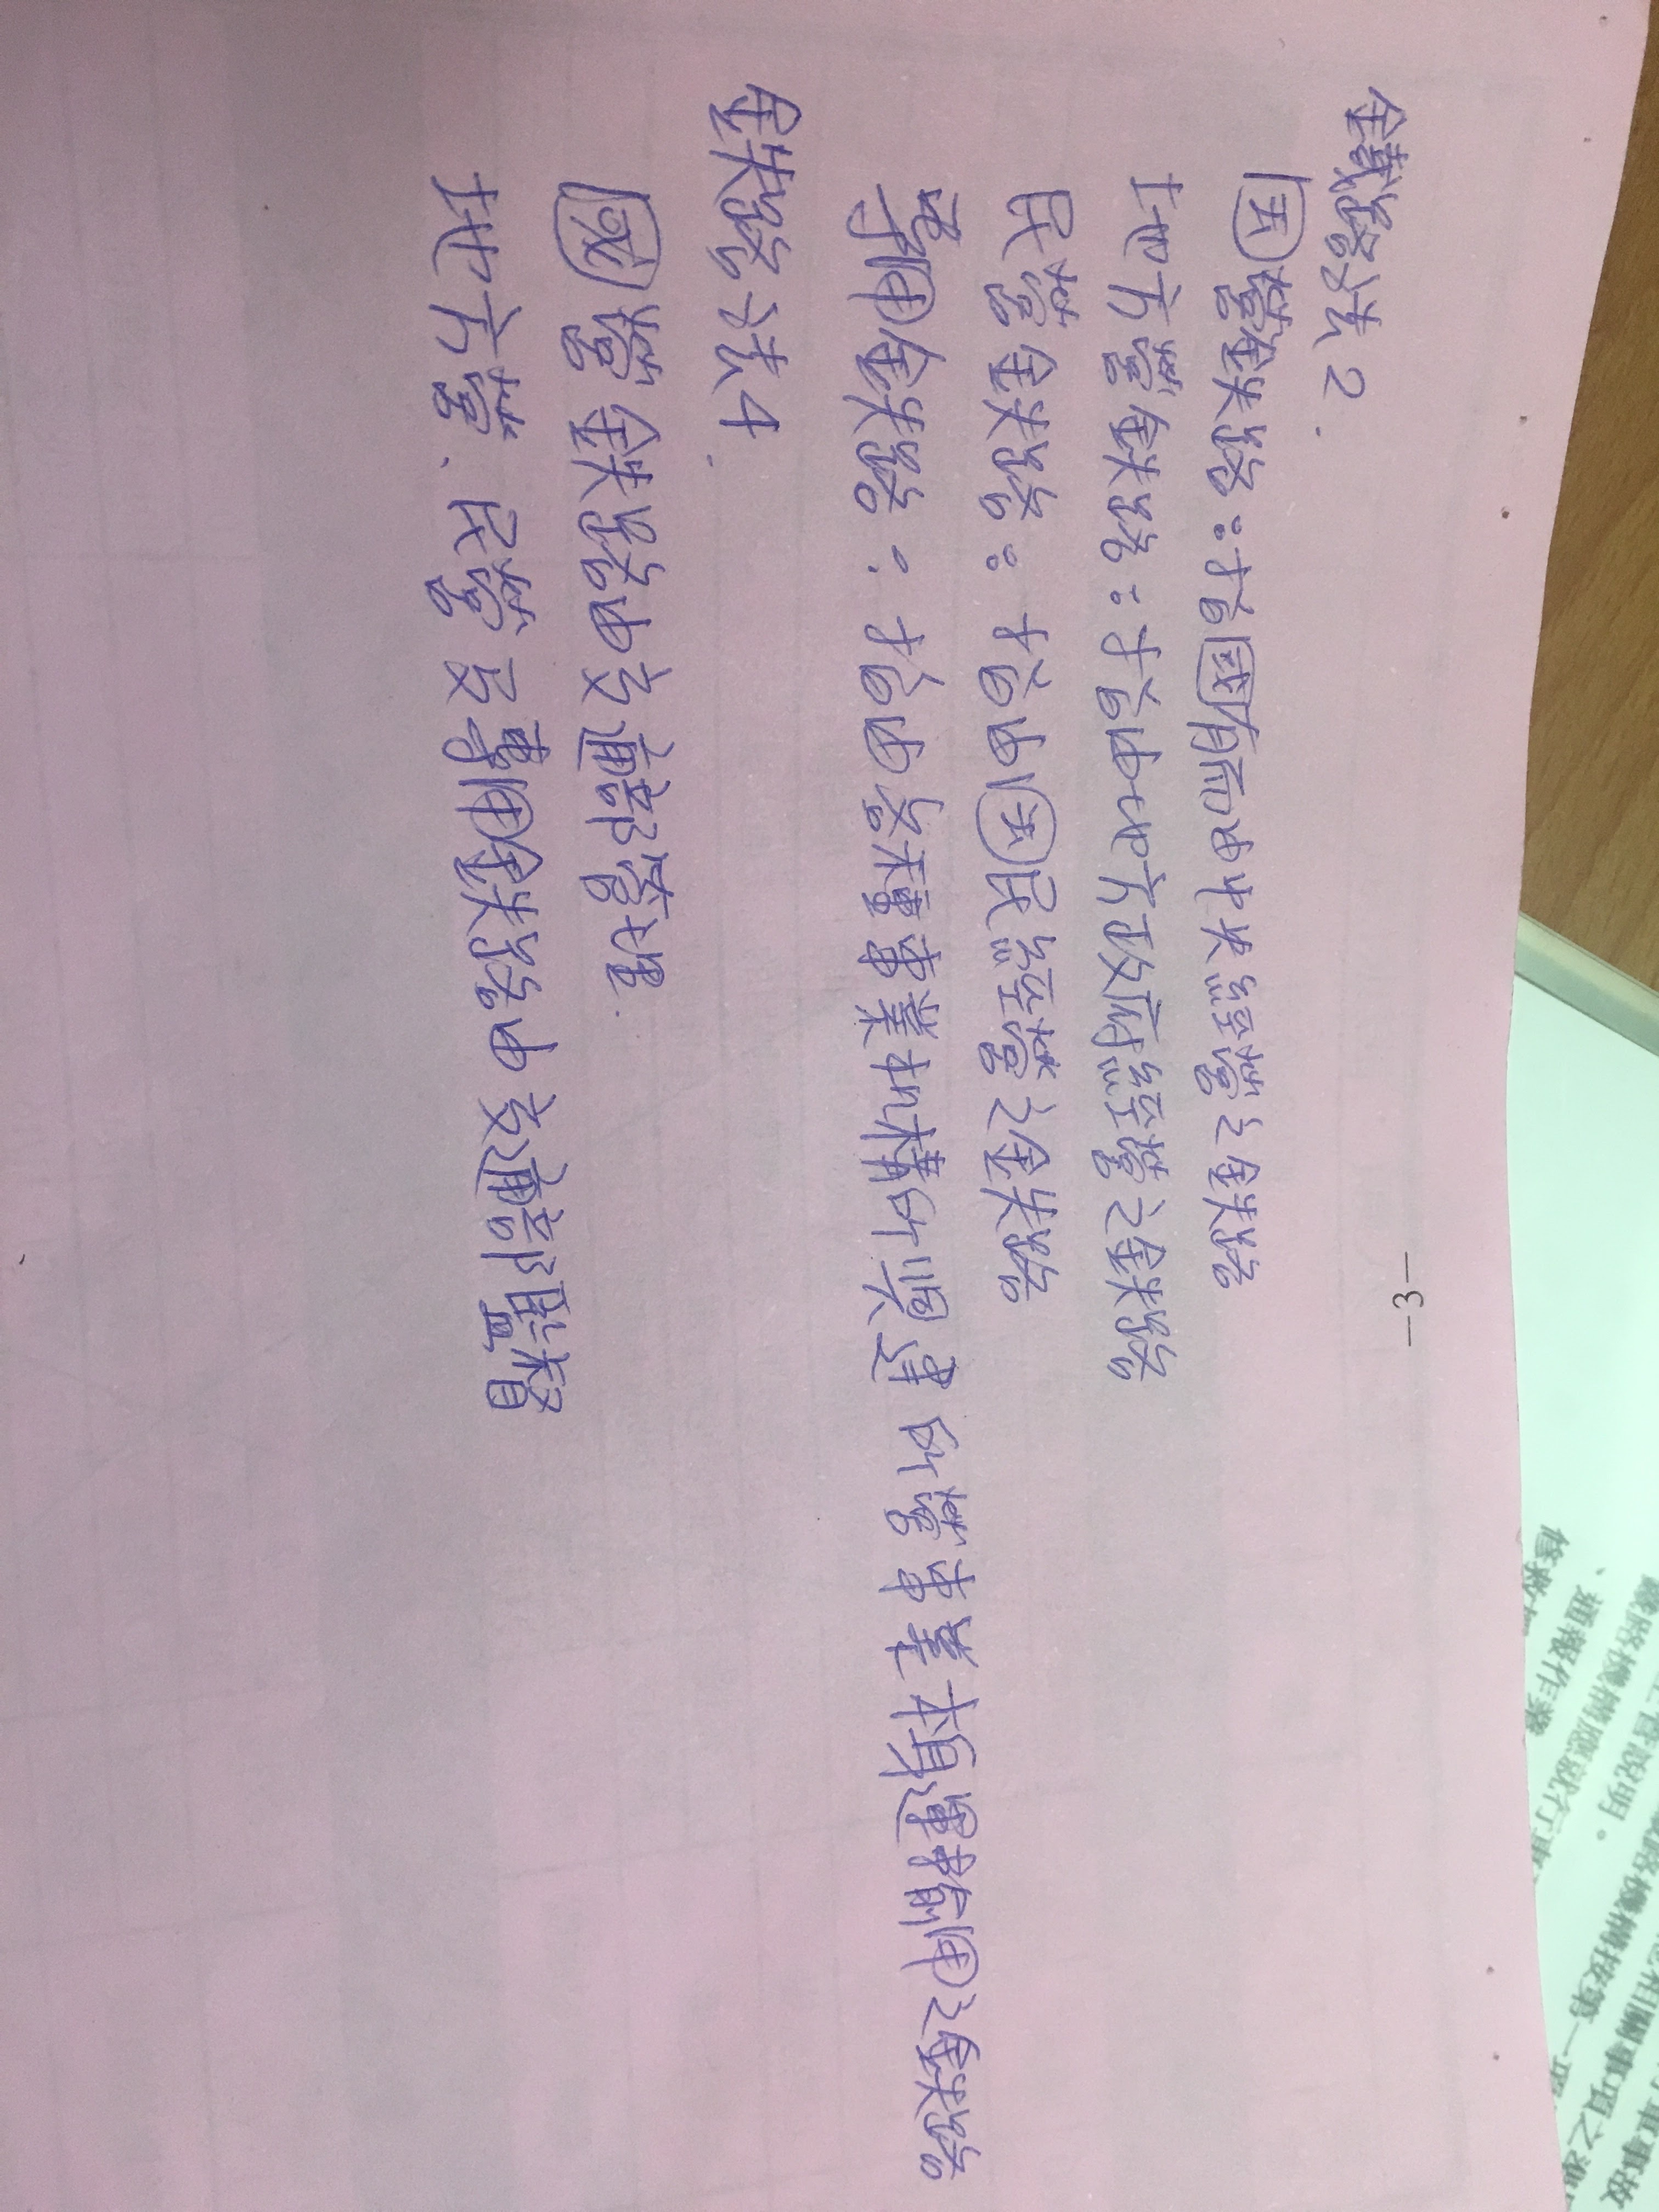 鐵路法2.
国營鉄路:指国有而由中央經營之鉄路
地方營鉄路:指由地方政府經營之鉄路
民營鉄路:指由国民經營之鉄路
專用鉄路:指由各種事業機構所興建 所營事業本身運輸用之鉄路
鉄路法4.
国營鉄路由交通部管理.
地方營、民營及專用鉄路由交通部監督
-3-